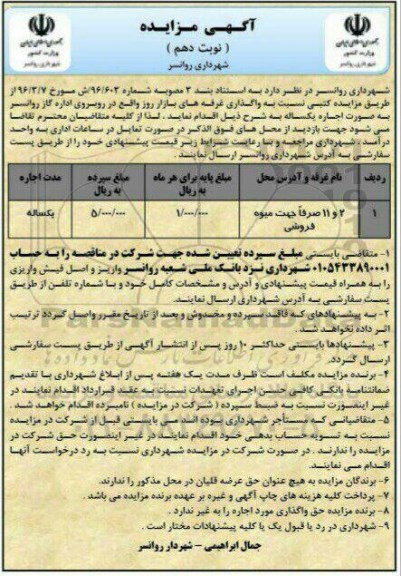 آگهی مزایده
( نوبت دهم )
شهرداری روانسر
شهرداری روانسر در نظر دارد به استناد بند ۲ مصوبه شماره ۹۶/۶۰۲/ش مورخ ۹۶/۳/۷ از
طریق مزایده کتبی نسبت به واگذاری غرفه های بازار روز واقع در روبروی اداره گاز روانسر
به صورت اجاره یکساله به شرح ذیل اقدام نماید . لذا از کلیه متقاضیان محترم تقاضا
می شود جهت بازدید از محل های فوق الذکر در صورت تمایل در ساعات اداری به واحد
درآمد ، شهرداری مراجعه و با رعایت شرایط زیر قیمت پیشنهادی خود را از طریق پست
سفارشی به آدرس شهرداری روانسر ارسال نمایند .
ردیف نام غرفه و آدرس محل مبلغ پایه برای هر ماه به ریال مبلغ سپرده به ریال مدت اجاره
۱ ۲ و ۱۱ صرفاً جهت میوه فروشی ۱/۰۰۰/۰۰۰ ۵/۰۰۰/۰۰۰ یکساله
۱- متقاضی بایستی مبلغ سپرده تعیین شده جهت شرکت در مناقصه را به حساب
۰۱۰۵۴۳۳۸۹۰۰۰۱ شهرداری نزد بانک ملی شعبه روانسر واریز و اصل فیش واریزی
را به همراه قیمت پیشنهادی و آدرس و مشخصات کامل خود و با شماره تلفن از طریق
پست سفارشی به آدرس شهرداری ارسال نمایند.
۲- به پیشنهادهای که فاقد سپرده و مخدوش و بعد از تاریخ مقرر واصل گردد ترتیب
اثر داده نخواهد شد .
۳- پیشنهادها بایستی حداکثر ۱۰ روز پس از انتشار آگهی از طریق پست سفارشی
ارسال گردد.
۴- برنده مزایده مکلف است ظرف مدت یک هفته پس از ابلاغ شهرداری با تقدیم
ضمانتنامه بانکی کافی حسن اجرای تعهدات نسبت به عقد قرارداد اقدام نمایند در
غیر اینصورت نسبت به ضبط سپرده ( شرکت در مزایده ) نامبرده اقدام خواهد شد .
۵- متقاضیانی که مستأجر شهرداری بوده اند می بایستی قبل از شرکت در مزایده
نسبت به تسویه حساب بدهی خود اقدام نمایند در غیر اینصورت حق شرکت در
مزایده را ندارند . در صورت شرکت در مزایده شهرداری نسبت به رد درخواست آنها
اقدام می نمایند.
۶- برندگان مزایده به هیچ عنوان حق عرضه قلیان در محل مذکور را ندارند.
۷- پرداخت کلیه هزینه های چاپ آگهی و غیره بر عهده برنده مزایده می باشد .
۸- برنده مزایده حق واگذاری مورد اجاره را به غیر ندارد .
۹- شهرداری در رد یا قبول یک یا کلیه پیشنهادات مختار است .
جمال ابراهیمی – شهردار روانسر